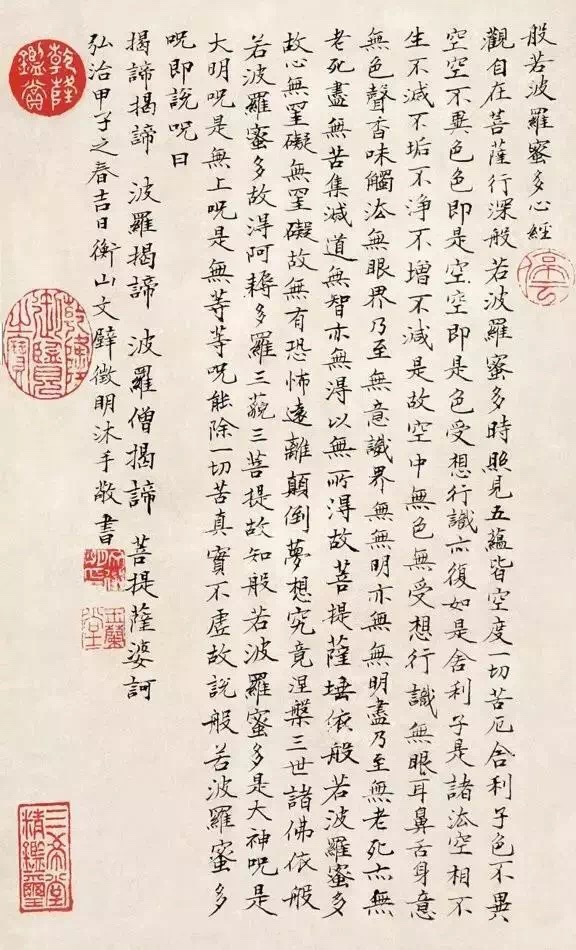 般若波羅蜜多心經
觀自在菩薩行深般若波羅蜜多時照見五蘊皆空度一切苦厄舍利子色不異
空空不異色色即是空空即是色受想行識亦復如是舍利子是諸法空相不
生不滅不垢不淨不增不減是故空中無色無受想行識無眼耳鼻舌身意
無色聲香味觸法無眼界乃至無意識界無無明亦無無明盡乃至無老死亦無
老死盡無苦集滅道無智亦無得以無所得故菩提薩埵依般若波羅蜜多
故心無罣礙無罣礙故無有恐怖遠離顛倒夢想究竟涅槃三世諸佛依般
若波羅蜜多故得阿耨多羅三藐三菩提故知般若波羅蜜多是大神呪是
大明呪是無上呪是無等等呪能除一切苦真實不虛故說般若波羅蜜多
呪即說呪曰
揭諦揭諦 波羅揭諦 波羅僧揭諦 菩提薩婆訶
弘治甲子之春吉日衡山文壁徵明沐手敬書
乾隆鑑賞
三希堂精鑑璽
玉蘭堂